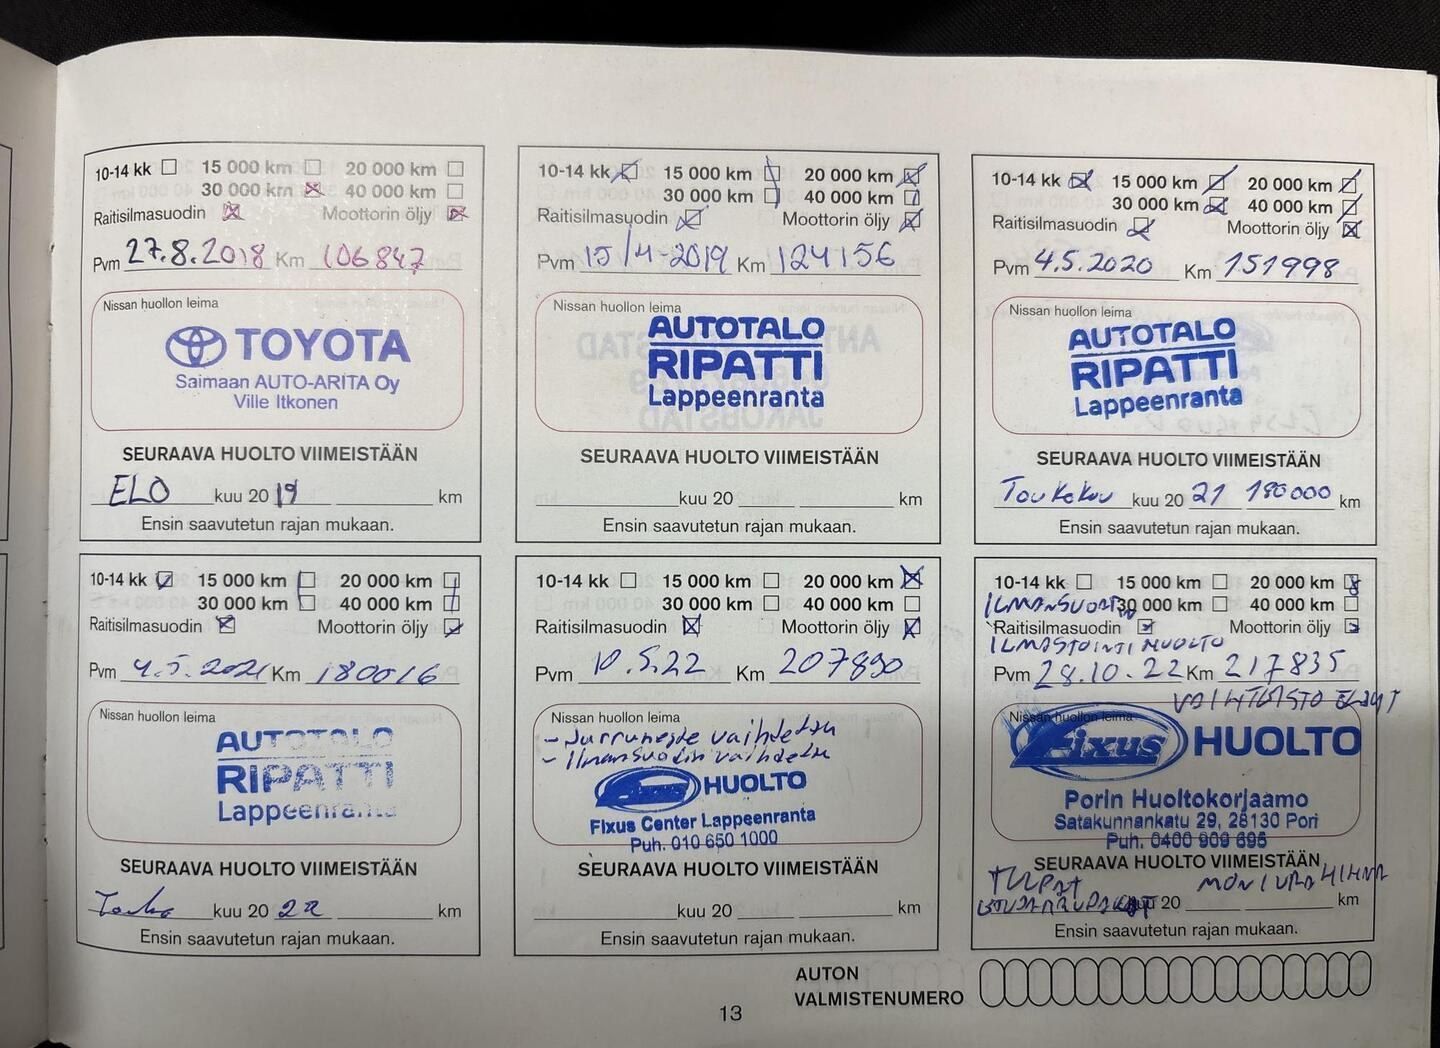 10-14 kk 15 000 km 20 000 km
30 000 km 40 000 km
Raitisilmasuodin Moottorin öljy
Pvm 27.8.2018 Km 106847
Nissan huollon leima
TOYOTA
Saimaan AUTO-ARITA Oy
Ville Itkonen
SEURAAVA HUOLTO VIIMEISTÄÄN
ELO kuu 20 19 km
Ensin saavutetun rajan mukaan.
10-14 kk 15 000 km 20 000 km
30 000 km 40 000 km
Raitisilmasuodin Moottorin öljy
Pvm 15/4-2019 Km 124156
Nissan huollon leima
AUTOTALO
RIPATTI
Lappeenranta
SEURAAVA HUOLTO VIIMEISTÄÄN
kuu 20 km
Ensin saavutetun rajan mukaan.
10-14 kk 15 000 km 20 000 km
30 000 km 40 000 km
Raitisilmasuodin Moottorin öljy
Pvm 4.5.2020 Km 151998
Nissan huollon leima
AUTOTALO
RIPATTI
Lappeenranta
SEURAAVA HUOLTO VIIMEISTÄÄN
Toukokuu kuu 20 21 180000 km
Ensin saavutetun rajan mukaan.
10-14 kk 15 000 km 20 000 km
30 000 km 40 000 km
Raitisilmasuodin Moottorin öljy
Pvm 4.5.2021 Km 180016
Nissan huollon leima
AUTOTALO
RIPATTI
Lappeenranta
SEURAAVA HUOLTO VIIMEISTÄÄN
Touko kuu 20 22 km
Ensin saavutetun rajan mukaan.
10-14 kk 15 000 km 20 000 km
30 000 km 40 000 km
Raitisilmasuodin Moottorin öljy
Pvm 10.5.22 Km 207890
Nissan huollon leima
- Jarruneste vaihdettu
- Ilmansuodin vaihdettu
Fixus HUOLTO
Fixus Center Lappeenranta
Puh. 010 650 1000
SEURAAVA HUOLTO VIIMEISTÄÄN
kuu 20 km
Ensin saavutetun rajan mukaan.
10-14 kk 15 000 km 20 000 km
ILMANSUODIN 30 000 km 40 000 km
Raitisilmasuodin Moottorin öljy
ILMASTOINTI HUOLTO
Pvm 28.10.22 Km 217835
VAIHTEISTO ÖLJYT
Nissan huollon leima
Fixus HUOLTO
Porin Huoltokorjaamo
Satakunnankatu 29, 28130 Pori
Puh. 0400 909 695
SEURAAVA HUOLTO VIIMEISTÄÄN
TULPAT MONIURAHIHNA
kuu 20 km
Ensin saavutetun rajan mukaan.
AUTON
VALMISTENUMERO
13